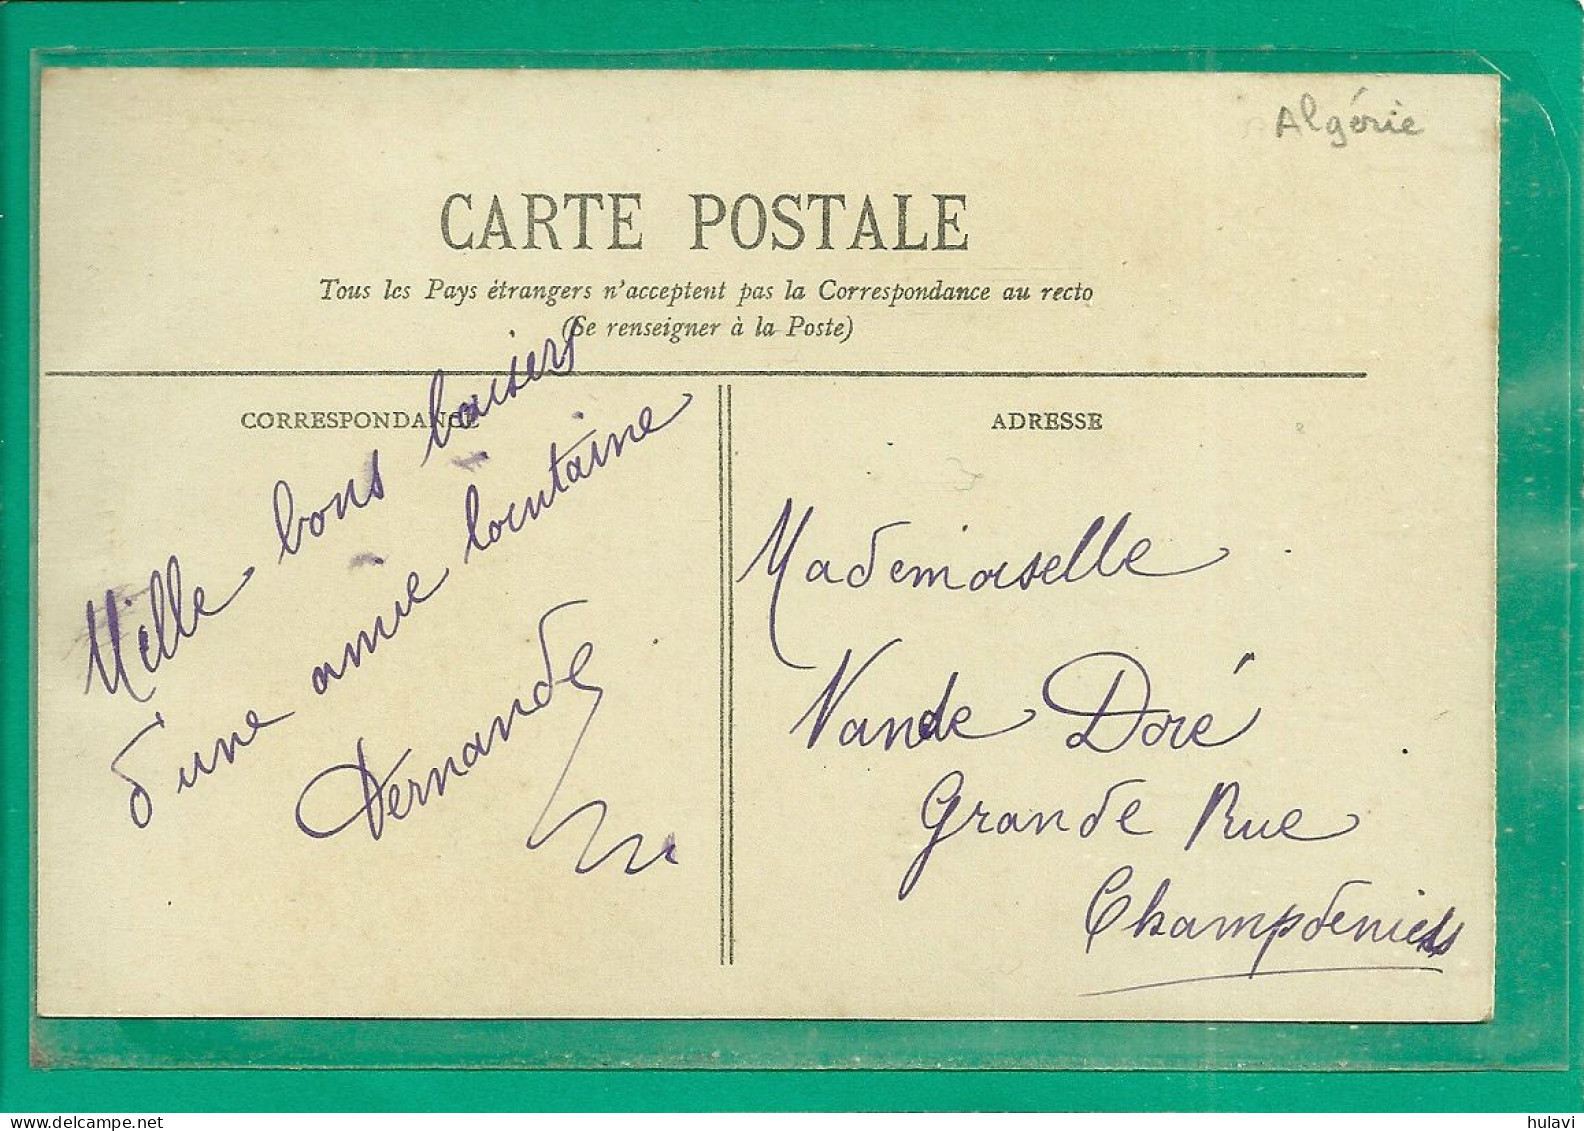 Algérie
CARTE POSTALE
Tous les Pays étrangers n'acceptent pas la Correspondance au recto
(Se renseigner à la Poste)
CORRESPONDANCE
Mille bons baisers
d'une amie lointaine
Fernande
ADRESSE
Mademoiselle
Vande Doré
Grande Rue
Champdeniers
hulavi